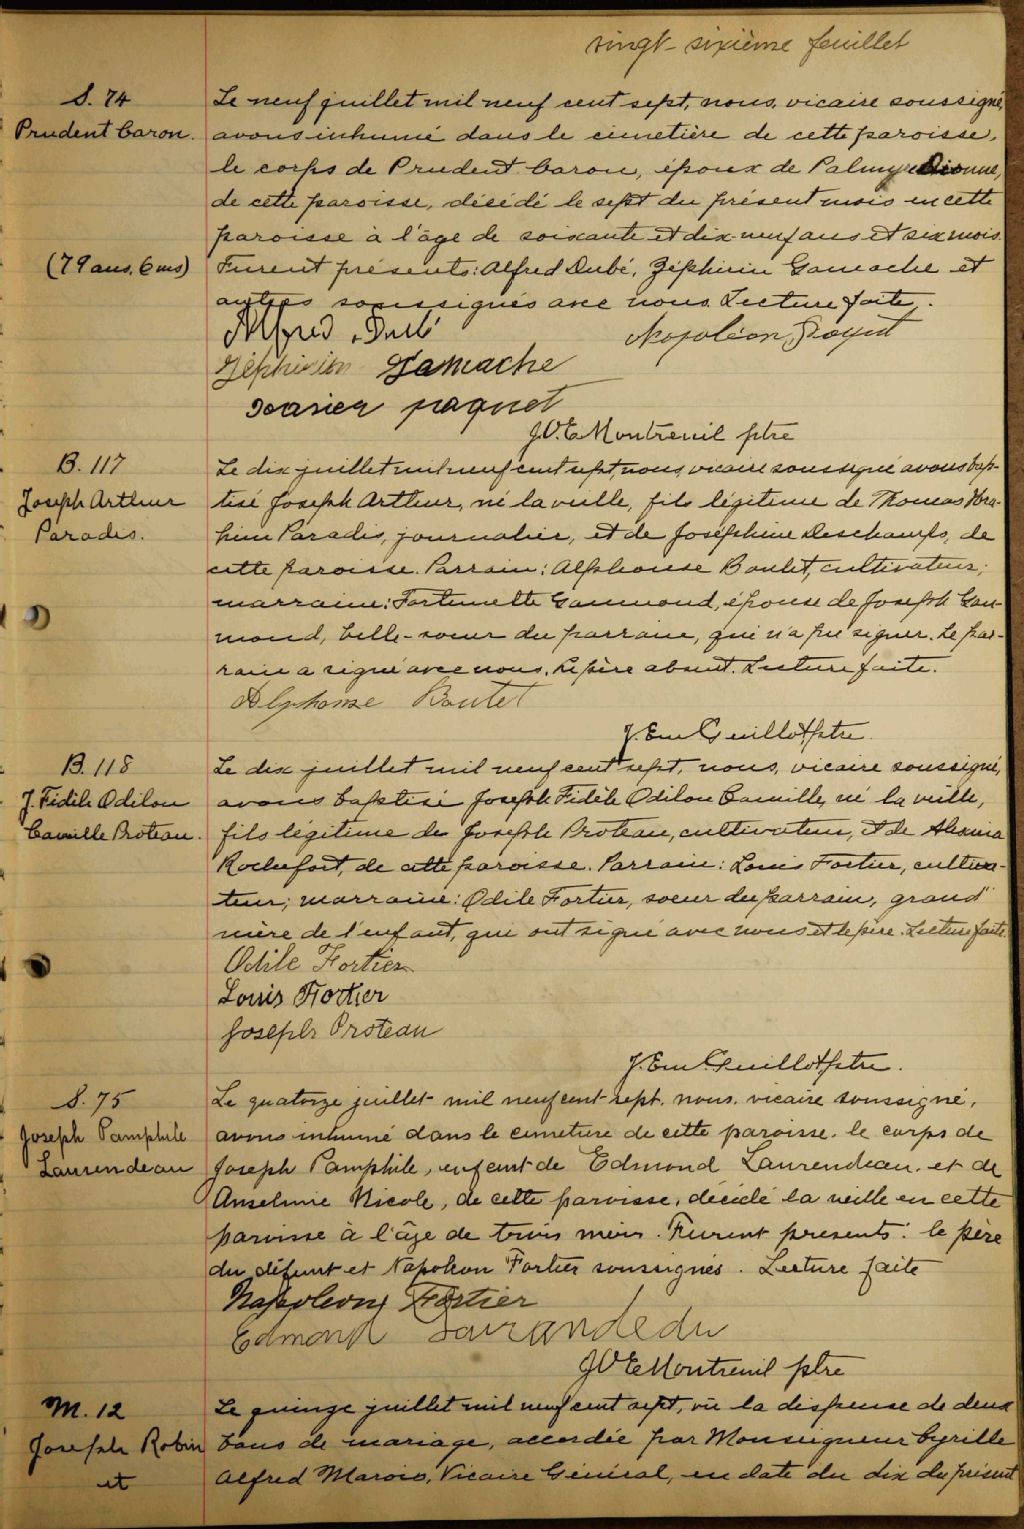 vingt-sixième feuillet
S. 74
Prudent Caron.
(79 ans, 6 ms)
Le neuf juillet mil neuf cent sept, nous, vicaire soussigné,
avons inhumé dans le cimetière de cette paroisse,
le corps de Prudent Caron, époux de Palmyre Dionne,
de cette paroisse, décédé le sept du présent mois en cette
paroisse à l'âge de soixante et dix-neuf ans et six mois.
Furent présents: Alfred Dubé, Zéphirin Gamache et
autres soussignés avec nous. Lecture faite.
Alfred Dubé
Napoléon
Zéphirin Gamache
paquet
J.O.E. Montreuil ptre
B. 117
Joseph Arthur
Paradis.
Le dix juillet mil neuf cent sept, nous, vicaire soussigné avons bap-
tisé Joseph Arthur, né la veille, fils légitime de Thomas
Paradis, journalier, et de Joséphine Deschamps, de
cette paroisse. Parrain: Alphonse Boutet, cultivateur;
marraine: Fortunette Gaumond, épouse de Joseph Gau-
mond, belle-soeur du parrain, qui n'a pu signer. Le par-
rain a signé avec nous. Le père absent. Lecture faite.
Alphonse Boutet
J. Em. Guillot ptre
B. 118
J. Fidèle Odilon
Camille Proteau.
Le dix juillet mil neuf cent sept, nous, vicaire soussigné,
avons baptisé Joseph Fidèle Odilon Camille, né la veille,
fils légitime de Joseph Proteau, cultivateur, et de Alexina
Rochefort, de cette paroisse. Parrain: Louis Fortier, cultiva-
teur; marraine: Odile Fortier, soeur du parrain, grand'
mère de l'enfant, qui ont signé avec nous et le père. Lecture faite.
Odile Fortier
Louis Fortier
Joseph Proteau
J. Em. Guillot ptre.
S. 75
Joseph Pamphile
Laurendeau
Le quatorze juillet mil neuf cent sept, nous, vicaire soussigné,
avons inhumé dans le cimetière de cette paroisse, le corps de
Joseph Pamphile, enfant de Edmond Laurendeau, et de
Anselmie Nicole, de cette paroisse, décédé la veille en cette
paroisse à l'âge de trois mois. Furent presents: le père
du défunt et Napoléon Fortier soussignés. Lecture faite
Napoleon Fortier
Edmond Laurandedu
J.O.E. Montreuil ptre
M. 12
Joseph Robin
et
Le quinze juillet mil neuf cent sept, vu la dispense de deux
bans de mariage, accordée par Monseigneur Cyrille
Alfred Marois, Vicaire Général, en date du dix du présent